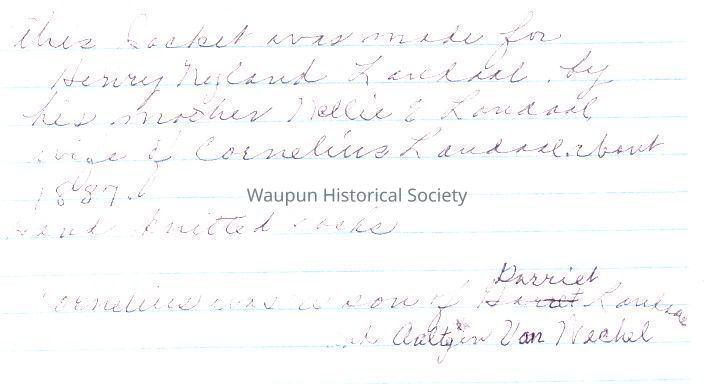 this Jacket was made for
Henry Nyland Landaal. by
his mother Nellie E Landaal
wife of Cornelius Landaal. about
1887.
Waupun Historical Society
Hand Knitted socks
Cornelius was a son of Garret Landaal
Darriet
and Aaltjen Van Mechel